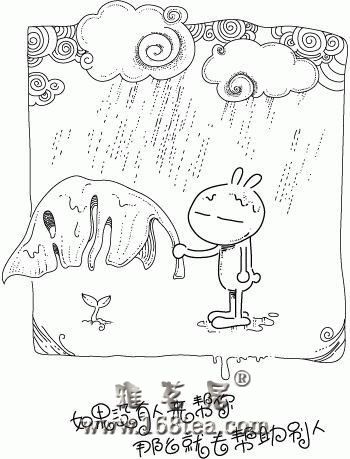 如果没有人来帮你
雅茗居®
www.168tea.com
那么就去帮助别人